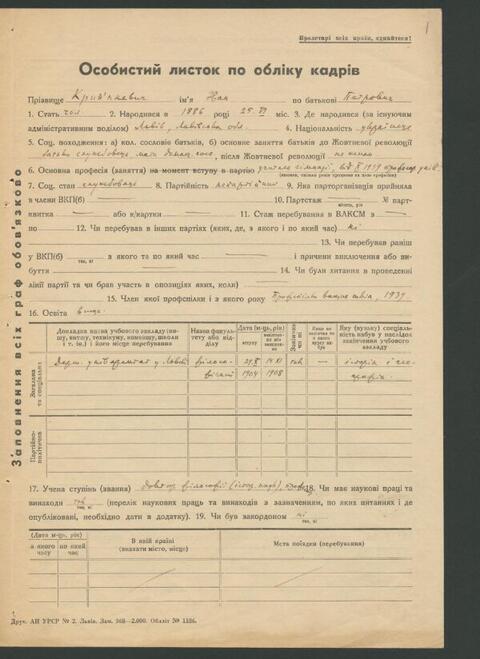 1
Пролетарі всіх країн, єднайтеся!
Особистий листок по обліку кадрів
Прізвище Крип'якевич ім'я Іван по батькові Петрович
1. Стать чол 2. Народився в 1886 році 25.VI міс. 3. Де народився (за існуючим
адміністративним поділом) Львів, Львівська обл. 4. Національність українець
5. Соц. походження: а) кол. сословіє батьків, б) основне заняття батьків до Жовтневої революції
батько службовець мати домаш. госп., після Жовтневої революції не живе
6. Основна професія (заняття) на момент вступу в партію учитель гімназії, від X 1939 професор унів.
7. Соц. стан службовець 8. Партійність непартійний 9. Яка парторганізація прийняла
в члени ВКП(б) — 10. Партстаж — № парт-
місяць, рік
квитка — або к/картки — 11. Стаж перебування в ВЛКСМ з —
по — 12. Чи перебував в інших партіях (яких, де, з якого і по який час) ні
13. Чи перебував раніш
у ВКП(б) — з якого та по який час — і причини виключення або ви-
так, ні
буття — 14. Чи були хитання в проведенні
лінії партії та чи брав участь в опозиціях (яких, коли) —
15. Член якої профспілки і з якого року Профспілка вищих шкіл, 1939
16. Освіта вища
Заповнення всіх граф обов'язково
Загальна та спеціальна
Партійно-політична
Докладна назва учбового закладу (ви-
шу, втузу, технікуму, комвишу, школи
і т. ін.) і його місце перебування
Назва факуль-
тету або від-
ділу
Дата (м-ць, рік)
вступу
Закінчив
так, ні
Яку (вузьку) спеціаль-
ність набув в наслідок
закінчення учбового
закладу
Держ. університет у Львові
філосо-
1904
1908
так
—
історія і гео-
графія
17. Учена ступінь (звання) Доктор філософії (істор. наук), професор 18. Чи має наукові праці та
винаходи так (перелік наукових праць та винаходів з зазначенням, по яких питаннях і де
так, ні
опубліковані, необхідно дати в додатку). 19. Чи був закордоном ні
так, ні
Дата (м-ць, рік)
з якого часу
по який час
В якій країні
(вказати місто, місце)
Мета поїздки (перебування)
Друк. АН УРСР № 2. Львів. Зам. 968—2.000. Обліліт № 1186.